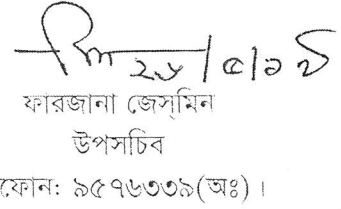 ২৬/৫/১৯
ফারজানা জেস্‌মিন
উপসচিব
ফোন: ৯৫৭৬৩৩৯(অঃ)।